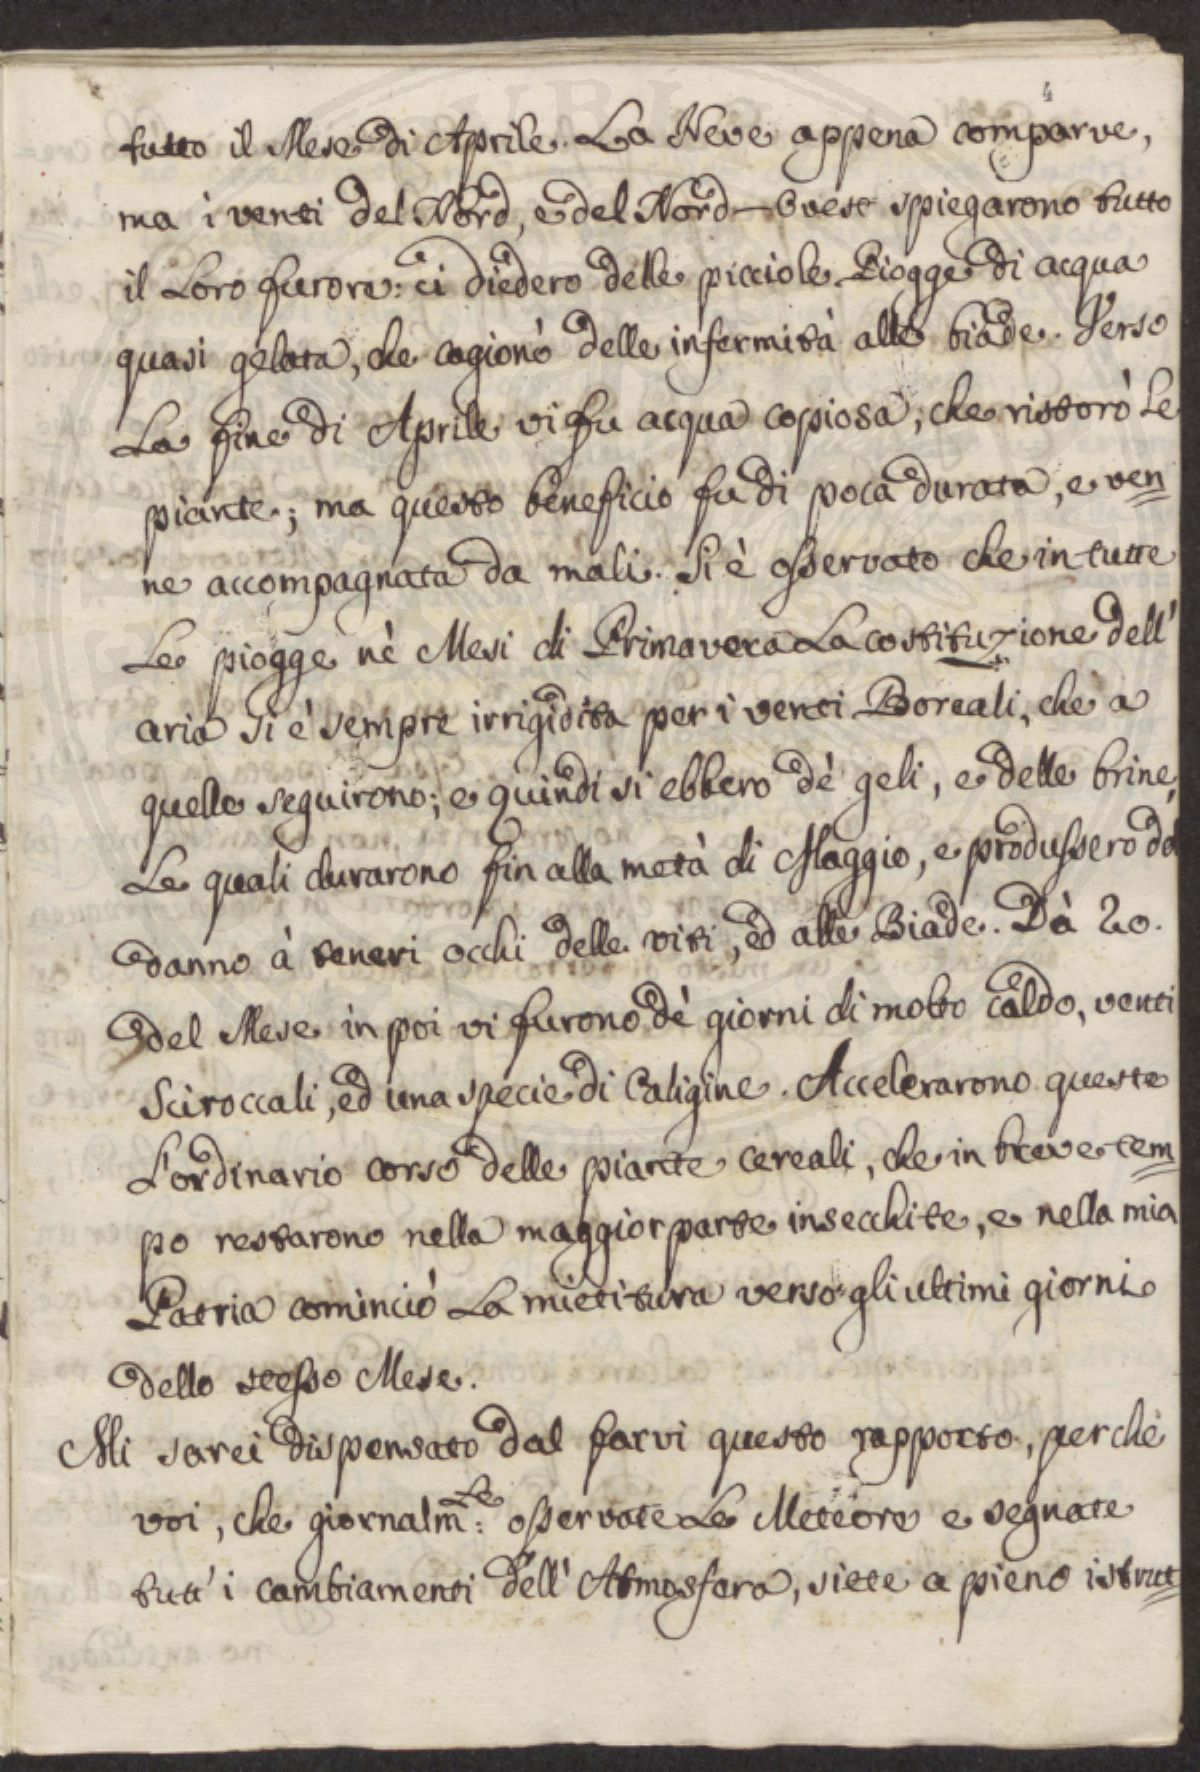 4
tutto il Mese di Aprile. La Neve appena comparve,
ma i venti del Nord, e del Nord-Ovest spiegarono tutto
il Loro furore: ci diedero delle picciole Piogge di acqua
quasi gelata, che cagionò delle infermità alle biade. Verso
La fine di Aprile vi fu acqua copiosa, che ristorò Le
piante; ma questo beneficio fu di poca durata, e ven=
ne accompagnata da mali. Si è osservato che in tutte
Le piogge nè Mesi di Primavera La costituzione dell'
aria si è sempre irrigidita per i venti Boreali, che a
quelle seguirono; e quindi si ebbero dè geli, e delle brine,
Le quali durarono fin alla metà di Maggio, e produssero del
danno à teneri occhi delle viti, ed alle Biade. Dà 20.
del Mese in poi vi furono dè giorni di molto caldo, venti
Sciroccali, ed una specie di Caligine. Accelerarono queste
L'ordinario corso delle piante cereali, che in breve tem=
po restarono nella maggior parte insecchite, e nella mia
Patria cominciò La mietitura verso gli ultimi giorni
dello stesso Mese.
Mi sarei dispensato dal farvi questo rapporto, perchè
voi, che giornalm.Le: osservate Le Meteore e segnate
tutt'i cambiamenti dell'Atmosfera, siete a pieno istrut=